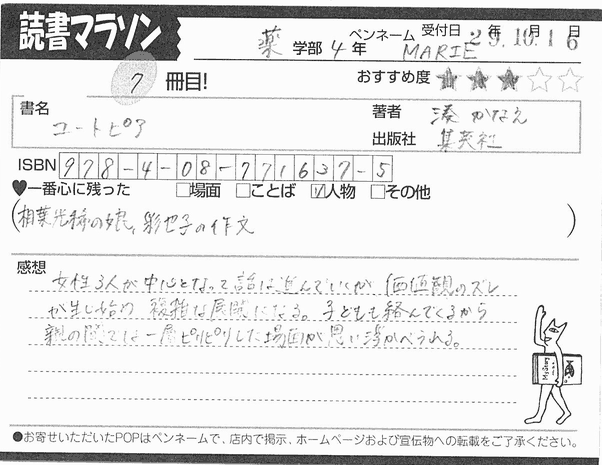 読書マラソン
薬 学部 4 年 ペンネーム MARIE 受付日 29年10月16日
7 冊目! おすすめ度 ★★★☆☆
書名 ユートピア
著者 湊かなえ
出版社 集英社
ISBN 978-4-08-771637-5
♥一番心に残った □場面 □ことば ☑人物 □その他
(相葉光稀の娘、彩也子の作文)
感想
女性3人が中心となって話は進んでいくが、価値観のズレ
が生じ始め、複雑な展開になる。子どもも絡んでくるから
親の間では一層ピリピリした場面が思い浮かべられる。
●お寄せいただいたPOPはペンネームで、店内で掲示、ホームページおよび宣伝物への転載をご了承ください。